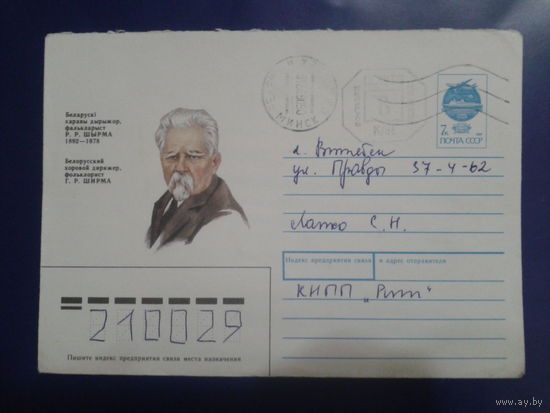 Беларускі
харавы дырыжор,
фалькларыст
Р. Р. ШЫРМА
1892—1978
Белорусский
хоровой дирижер,
фольклорист
Г. Р. ШИРМА
МИНСК
7к
ПОЧТА СССР
г. Витебск
ул. Правды 37-4-62
С. Н.
Индекс предприятия связи и адрес отправителя
КНПП
210029
Пишите индекс предприятия связи места назначения
www.ay.by